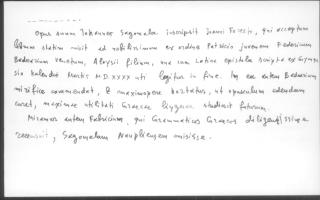 Opus suum Johannes Segomalas inscripsit Joanni Foresto, qui acceptum
librum statim misit ad nobilissimum ex ordine Patricio juvenem Federicum
Badoerium venetum, Aloysii filium, una cum Latina epistula scripta ex Gymna
sio Kalendis Martii M.D.XXXX uti legitur in fine. In ea enim Badoerium
mirifice commendat, & maximopere hortatur, ut opusculum edendum
curet, maxima utilitati Graecae linguae studiosis futurum.
Miramur autem Fabricium, qui Grammaticos Graecos diligentissime
recensuit, Segomalam Naupliensem omisisse.